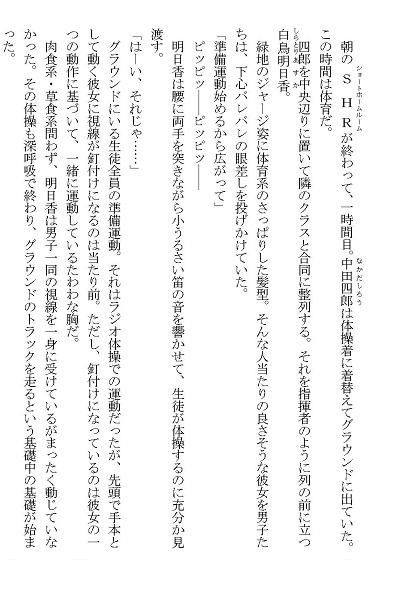 朝のＳＨＲが終わって、一時間目。中田四郎は体操着に着替えてグラウンドに出ていた。
この時間は体育だ。
四郎を中央辺りに置いて隣のクラスと合同に整列する。それを指揮者のように列の前に立つ
白鳥明日香。
緑地のジャージ姿に体育系のさっぱりした髪型。そんな人当たりの良さそうな彼女を男子た
ちは、下心バレバレの眼差しを投げかけていた。
「準備運動始めるから広がって」
ピッピッ――ピッピッ――
明日香は腰に両手を突きながら小うるさい笛の音を響かせて、生徒が体操するのに充分か見
渡す。
「はーい、それじゃ……」
グラウンドにいる生徒全員の準備運動。それはラジオ体操での運動だったが、先頭で手本と
して動く彼女に視線が釘付けになるのは当たり前。ただし、釘付けになっているのは彼女の一
つの動作に基づいて、一緒に運動しているたわわな胸だ。
肉食系・草食系問わず、明日香は男子一同の視線を一身に受けているがまったく動じていな
かった。その体操も深呼吸で終わり、グラウンドのトラックを走るという基礎中の基礎が始ま
った。